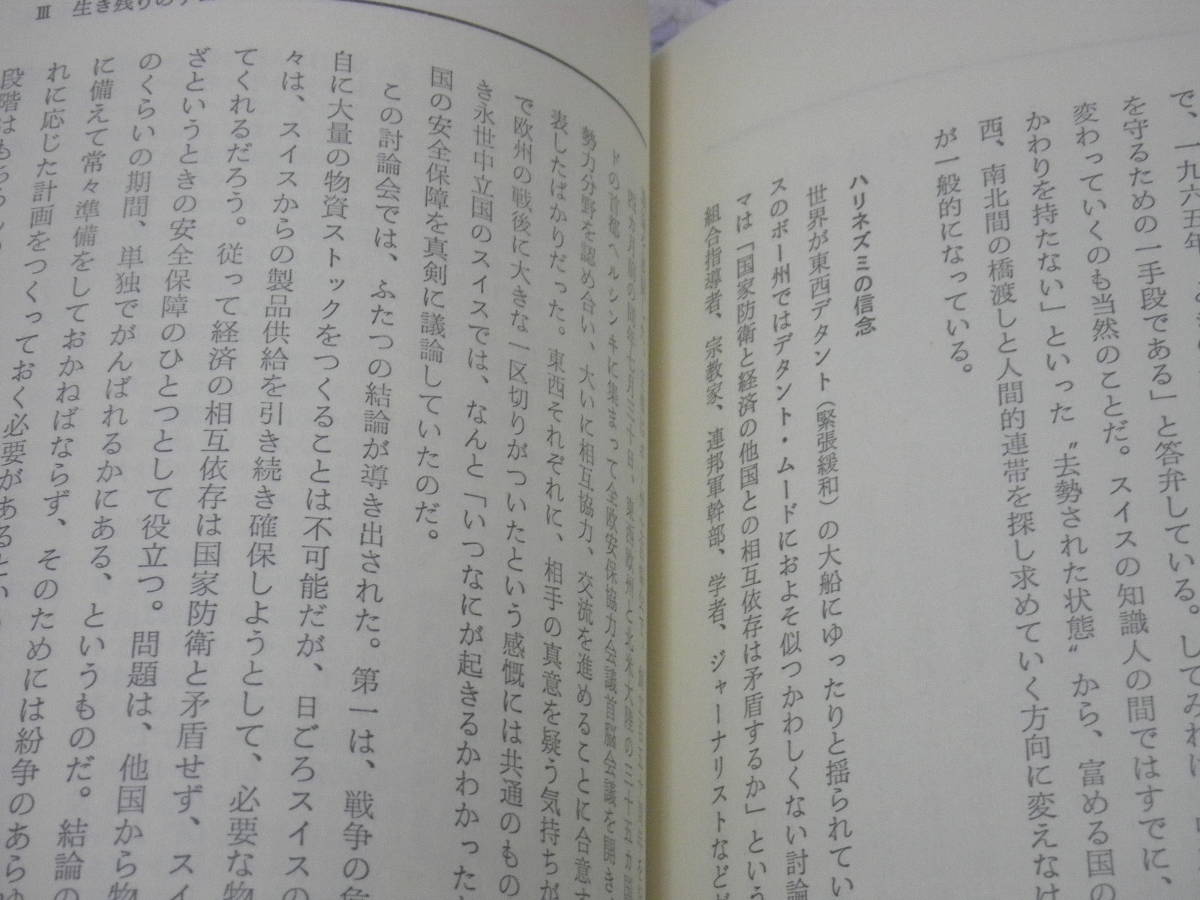 で、一九六五年
を守るための一手段である」と答弁している。してみれ
変わっていくのも当然のことだ。スイスの知識人の間ではすでに、
かわりを持たない」といった〝去勢された状態〟から、富める国の
西、南北間の橋渡しと人間的連帯を探し求めていく方向に変えなけ
が一般的になっている。
ハリネズミの信念
世界が東西デタント(緊張緩和)の大船にゆったりと揺られてい
スのボー州ではデタント・ムードにおよそ似つかわしくない討論
マは「国家防衛と経済の他国との相互依存は矛盾するか」という
組合指導者、宗教家、連邦軍幹部、学者、ジャーナリストなど
Ⅲ 生き残りの
四カ月前の同年七月三十日、東西欧州と北米大陸の三十五カ国
ドの首都ヘルシンキに集まって全欧安保協力会議首脳会議を開き
勢力分野を認め合い、大いに相互協力、交流を進めることに合意
表したばかりだった。東西それぞれに、相手の真意を疑う気持ちが
で欧州の戦後に大きな一区切りがついたという感慨には共通のもの
き永世中立国のスイスでは、なんと「いつなにが起きるかわかった
国の安全保障を真剣に議論していたのだ。
この討論会では、ふたつの結論が導き出された。第一は、戦争の危
自に大量の物資ストックをつくることは不可能だが、日ごろスイスの
々は、スイスからの製品供給を引き続き確保しようとして、必要な物
てくれるだろう。従って経済の相互依存は国家防衛と矛盾せず、スイ
ざというときの安全保障のひとつとして役立つ。問題は、他国から物
のくらいの期間、単独でがんばれるかにある、というものだ。結論の
に備えて常々準備をしておかねばならず、そのためには紛争のあらゆ
れに応じた計画をつくっておく必要があると
段階はもちろん